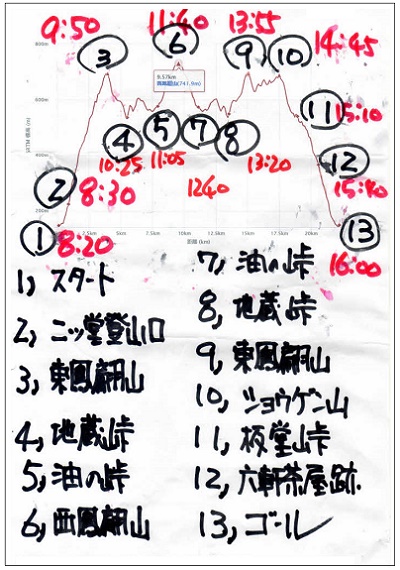 9:50
11:40
13:55
14:45
③
⑥
⑨
⑩
800m
9.57km
西鳳翩山(741.9m)
600m
④
⑤
⑦
⑧
⑪
15:10
10:25
11:05
12:40
13:20
⑫
15:40
②
8:30
200m
①
8:20
⑬
16:00
2.5km
5km
7.5km
10km
12.5km
15km
17.5km
20km
距離 (km)
1, スタート
2, 二ッ堂登山口
3, 東鳳翩山
4, 地蔵峠
5, 油ノ峠
6, 西鳳翩山
7, 油ノ峠
8, 地蔵峠
9, 東鳳翩山
10, ショウゲン山
11, 板堂峠
12, 六軒茶屋跡
13, ゴール